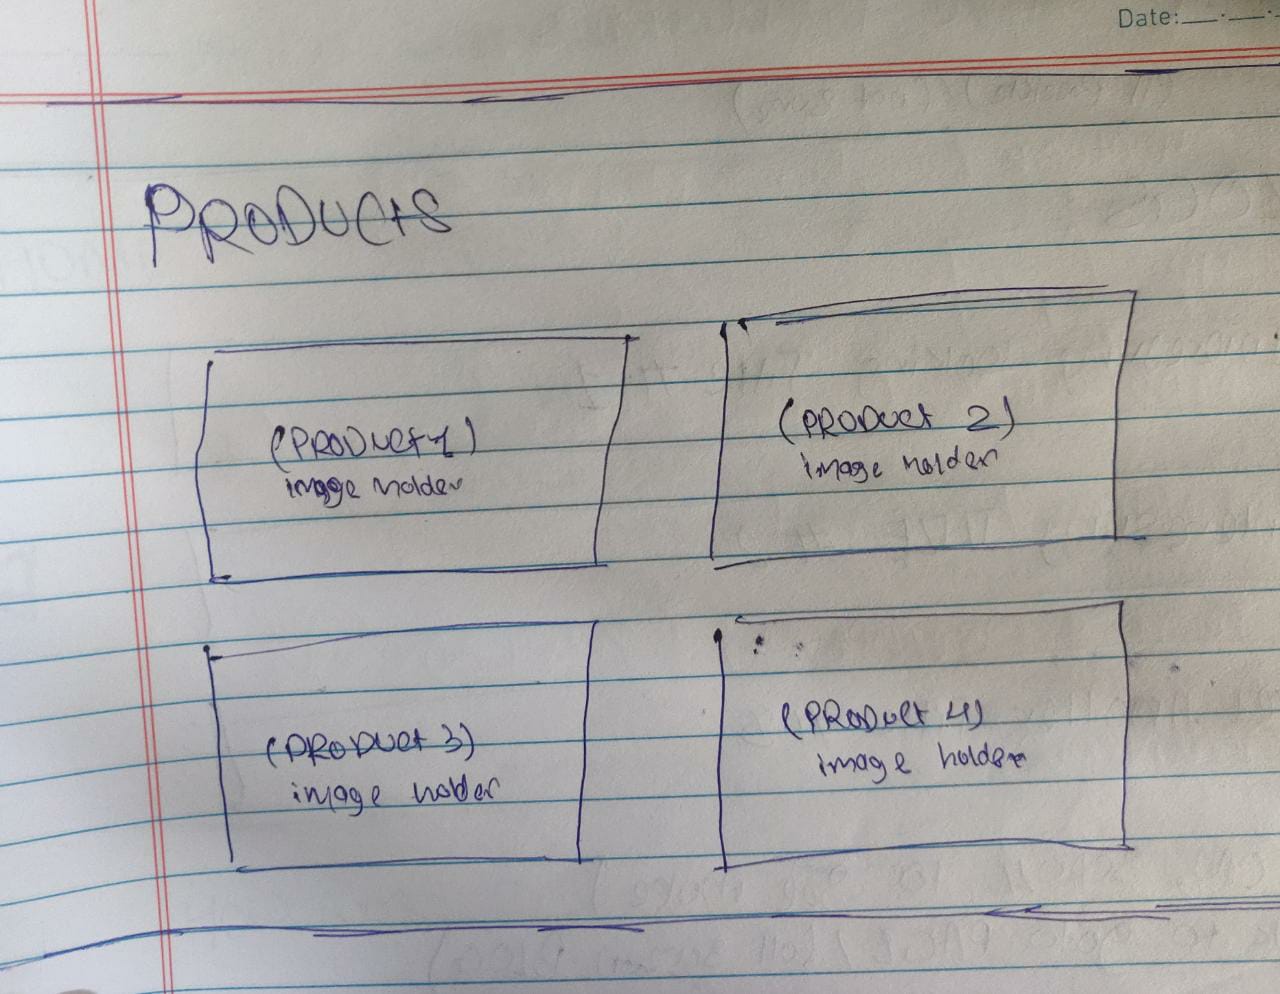 Date:
PRODUCts
(PRODUct 1)
image holder
(PRODUct 2)
image holder
(PRODUct 3)
image holder
(PRODUct 4)
image holder